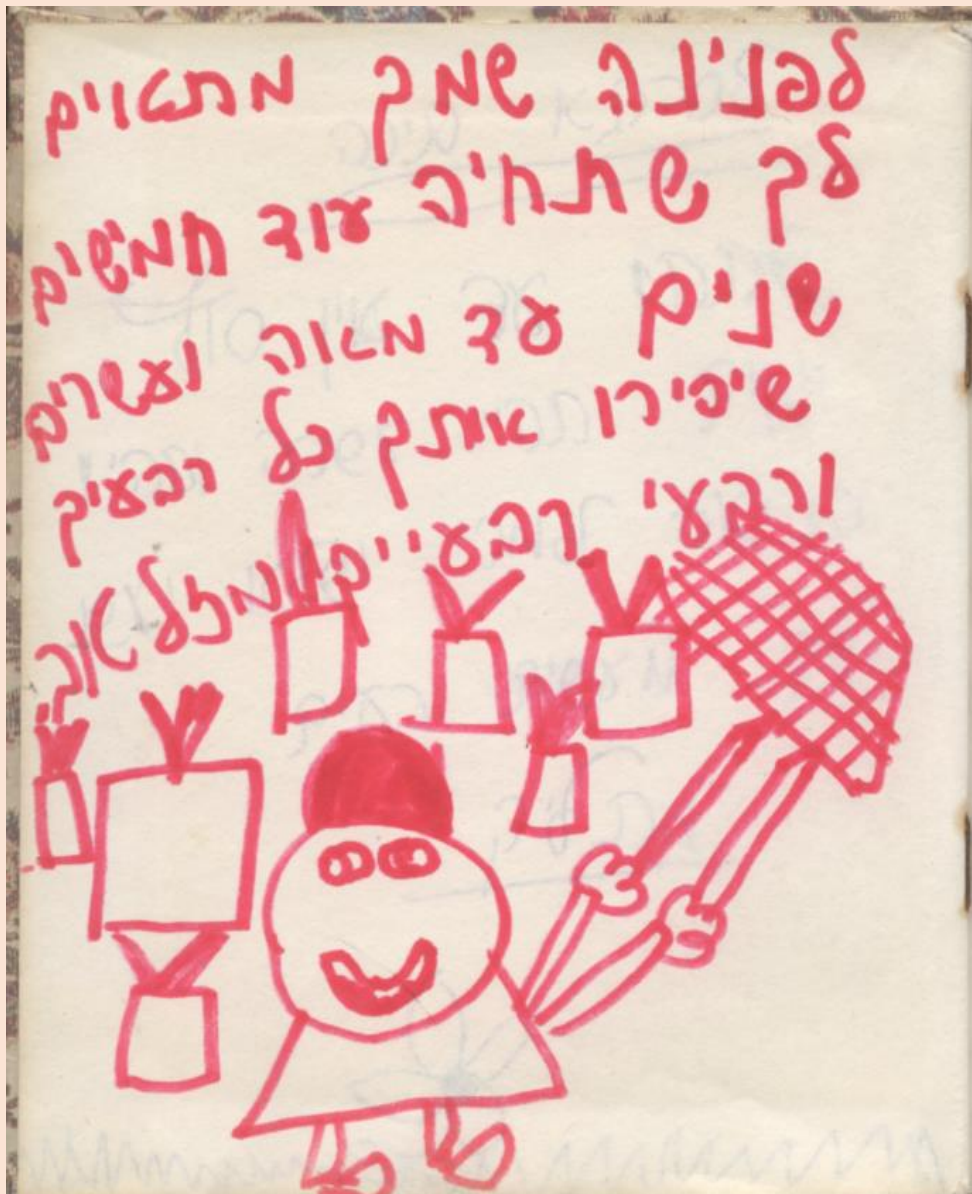 לפנינה שמך מתאוים
לך שתחיה עוד חמישים
שנים עד מאוה ועשרים
שיכירו אותך כל רבעיך
ורבעי רבעייך מזל טוב